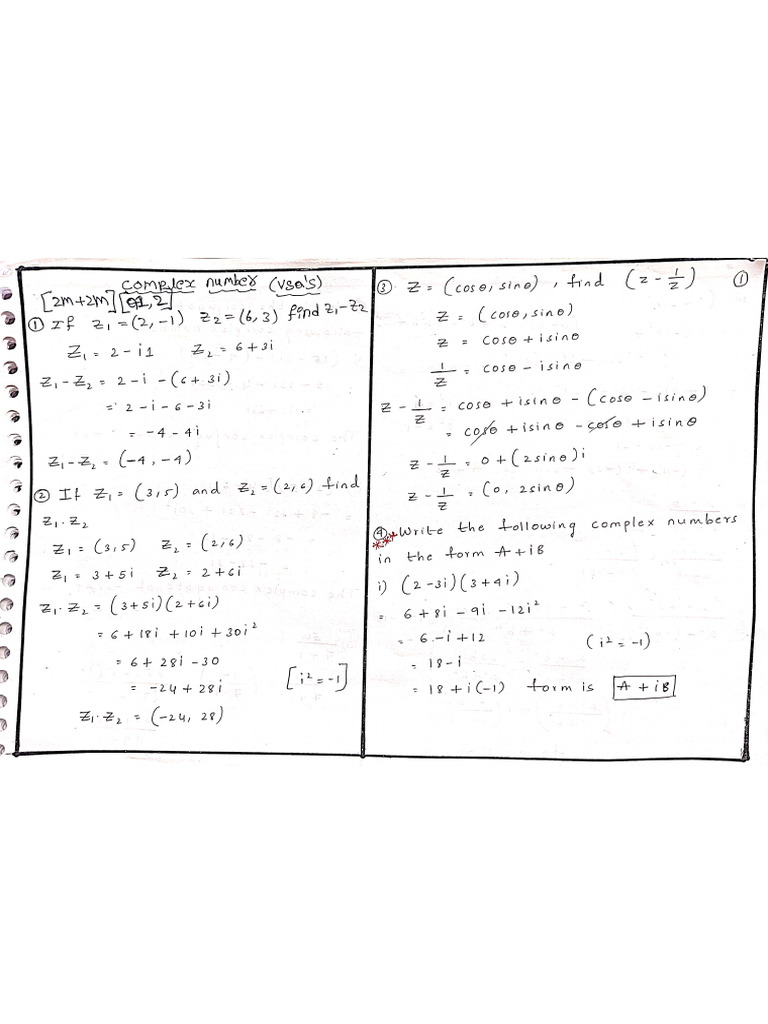 complex number (VSQ'S)
[2m+2m] [Q1,2]
① If z₁=(2,-1) z₂=(6,3) find z₁-z₂
z₁ = 2-i1 z₂ = 6+3i
z₁-z₂ = 2-i-(6+3i)
= 2-i-6-3i
= -4-4i
z₁-z₂ = (-4,-4)
② If z₁ = (3,5) and z₂ = (2,6) find
z₁.z₂
z₁ = (3,5) z₂ = (2,6)
z₁ = 3+5i z₂ = 2+6i
z₁.z₂ = (3+5i)(2+6i)
= 6+18i+10i+30i²
= 6+28i-30
= -24+28i [i²=-1]
z₁.z₂ = (-24,28)
③ z = (cosθ, sinθ), find (z - 1/z) ①
z = (cosθ, sinθ)
z = cosθ + isinθ
1/z = cosθ - isinθ
z - 1/z = cosθ + isinθ - (cosθ - isinθ)
= cosθ + isinθ - cosθ + isinθ
z - 1/z = 0+(2sinθ)i
z - 1/z = (0, 2sinθ)
④ *** Write the following complex numbers
in the form A+iB
i) (2-3i)(3+4i)
= 6+8i-9i-12i²
= 6-i+12 (i²=-1)
= 18-i
= 18+i(-1) form is A+iB